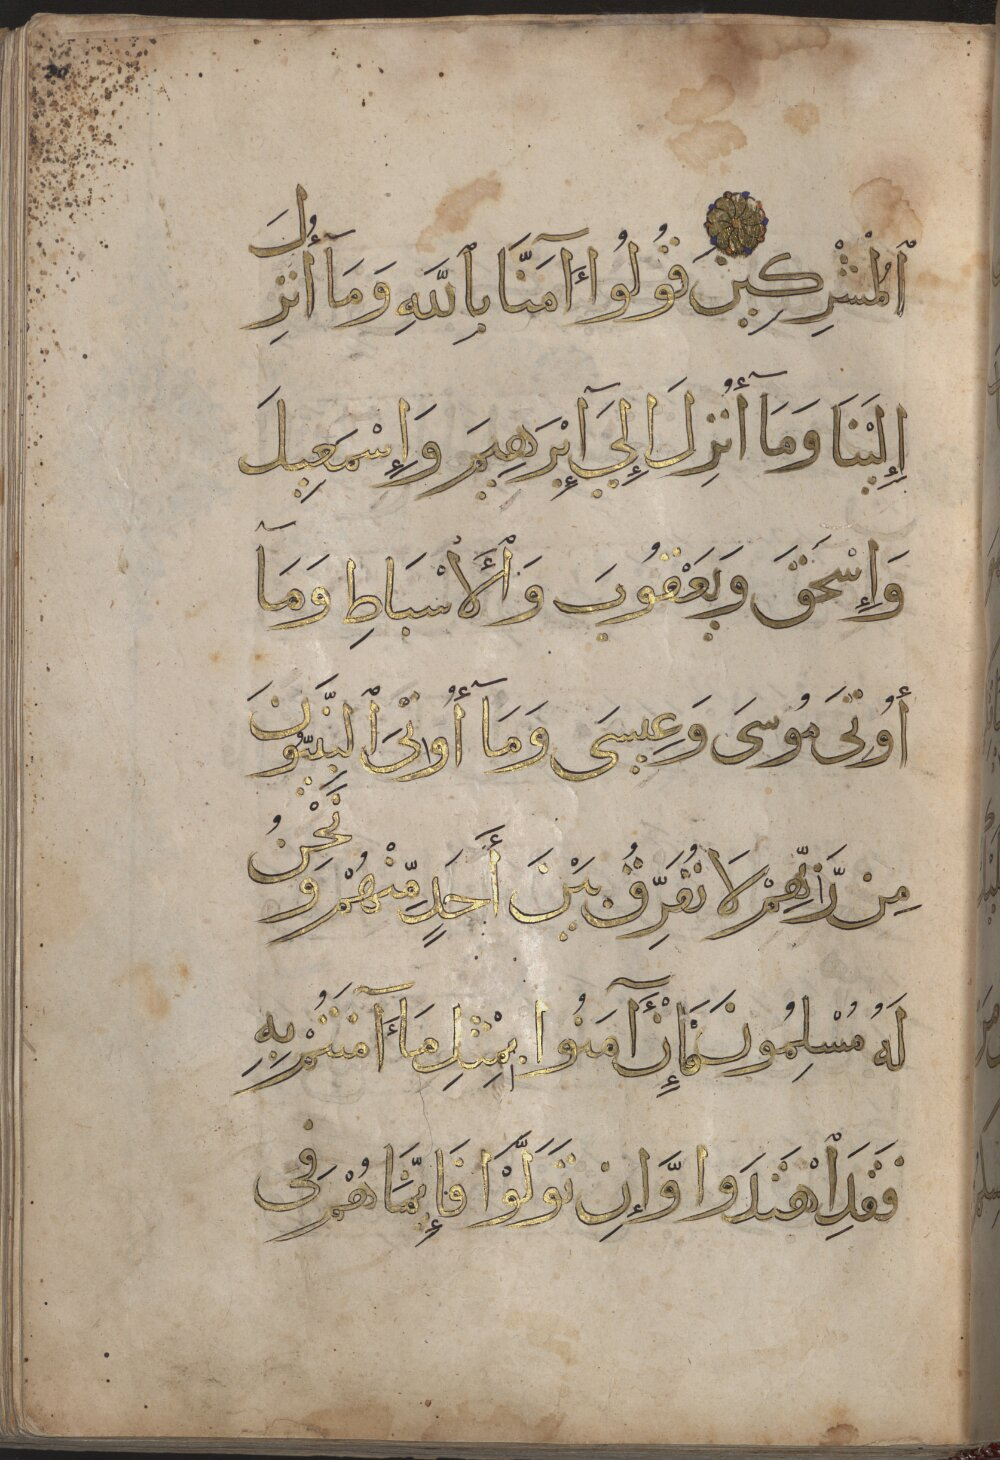 ٱلْمُشْرِكِينَ قُولُوٓا۟ ءَامَنَّا بِٱللَّهِ وَمَآ أُنزِلَ
إِلَيْنَا وَمَآ أُنزِلَ إِلَىٰٓ إِبْرَٰهِيمَ وَإِسْمَٰعِيلَ
وَإِسْحَٰقَ وَيَعْقُوبَ وَٱلْأَسْبَاطِ وَمَآ
أُوتِىَ مُوسَىٰ وَعِيسَىٰ وَمَآ أُوتِىَ ٱلنَّبِيُّونَ
مِن رَّبِّهِمْ لَا نُفَرِّقُ بَيْنَ أَحَدٍ مِّنْهُمْ وَنَحْنُ
لَهُ مُسْلِمُونَ فَإِنْ ءَامَنُوا بِمِثْلِ مَآ ءَامَنتُمْ بِهِ
فَقَدِ ٱهْتَدَوا وَّإِن تَوَلَّوْا فَإِنَّمَا هُمْ فِى